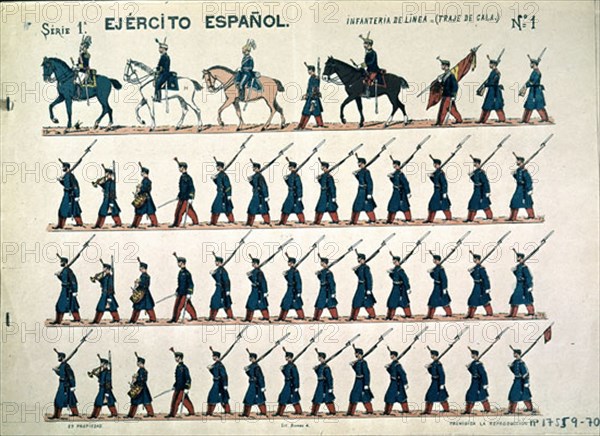 SÉRIE 1ª
EJÉRCITO ESPAÑOL.
INFANTERIA DE LINEA.. (TRAJE DE GALA.)
Nº 1
ES PROPIEDAD
PROHIBIDA LA REPRODUCCION
nº 17559-70
PHOTO12